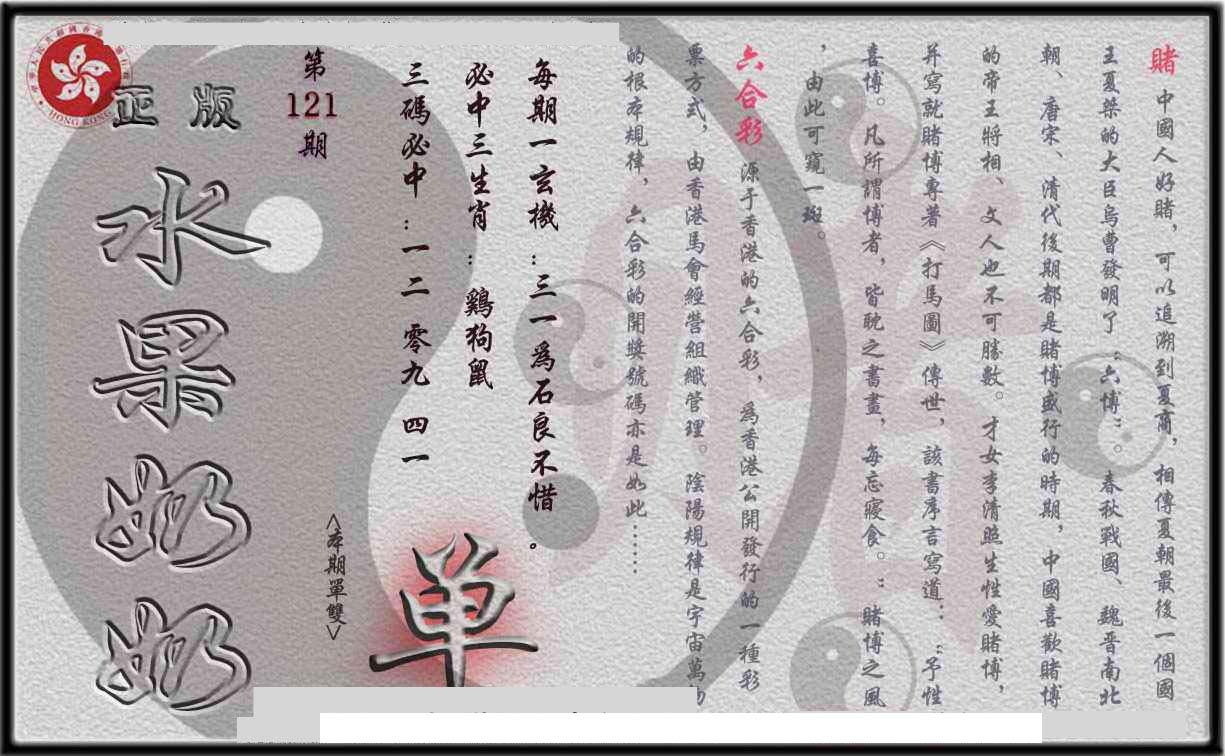 賭 中國人好賭，可以追溯到夏商，相傳夏朝最後一個國
王夏桀的大臣烏曹發明了“六博”。春秋戰國、魏晋南北
朝、唐宋、清代後期都是賭博盛行的時期，中國喜歡賭博
的帝王將相、文人也不可勝數。才女李清照生性愛賭博，
并寫就賭博專著《打馬圖》傳世，該書序言寫道：“予性
喜博。凡所謂博者，皆耽之晝，每忘寢食。”賭博之風
，由此可窺一斑。
六合彩 源于香港的六合彩，為香港公開發行的一種彩
票方式，由香港馬會經營組織管理。陰陽規律是宇宙萬物
的根本規律，六合彩的開獎號碼亦是如此……
每期一玄機：三一為石良不惜。
必中三生肖：鷄狗鼠
三碼必中：一二 零九 四一
第
121
期
<本期單雙>
单
正版
水果奶奶
HONG KONG